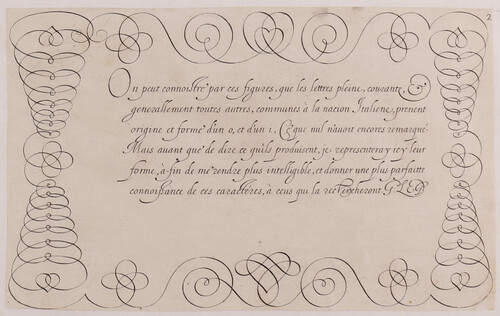 2
On peut connoistre par ces figures, que les lettres pleine, courante, &
generallement toutes autres, communes à la nacion Italiene, prenent
origine et forme d'un o, et d'un i, Ce que nul n'avoit encores remarqué
Mais avant que de dire ce qu'ils produisent, je representeray icy leur
forme, a-fin de me rendre plus intelligible, et donner une plus parfaitte
connoissance de ces caracteres, à ceus qui la rechercheront.